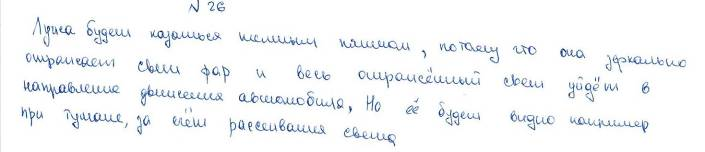 № 26
Лужа будет казаться темным пятном, потому что она зеркально
отражает свет фар и весь отражённый свет уйдёт в
направление движения автомобиля, Но её будет видно например
при тумане, за счёт рассеивания света